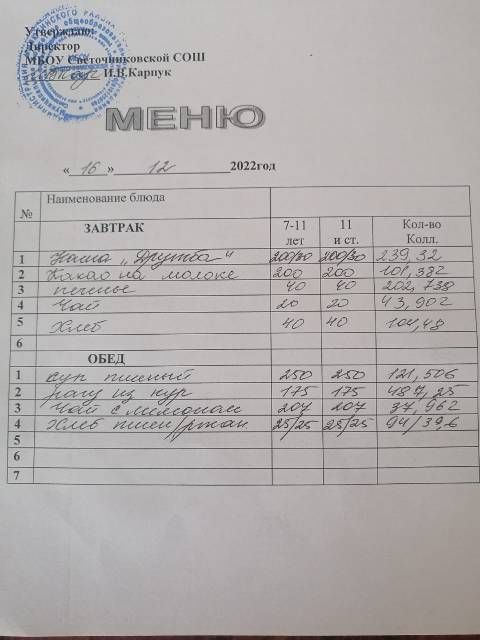 Утверждаю
Директор
МБОУ Светочниковской СОШ
И.В.Карпук
МЕНЮ
« 16 » 12 2022год
№ Наименование блюда
ЗАВТРАК 7-11 лет 11 и ст. Кол-во Колл.
1 Каша „Дружба" 200/30 200/30 239,32
2 Какао на молоке 200 200 101,382
3 печенье 40 40 202,738
4 Чай 20 20 43,902
5 Хлеб 40 40 104,48
6
ОБЕД
1 суп пшеный 250 250 121,506
2 рагу из кур 175 175 487,25
3 Чай с лимоном 207 207 37,962
4 Хлеб пшен/ржан 25/25 25/25 94/39,6
5
6
7